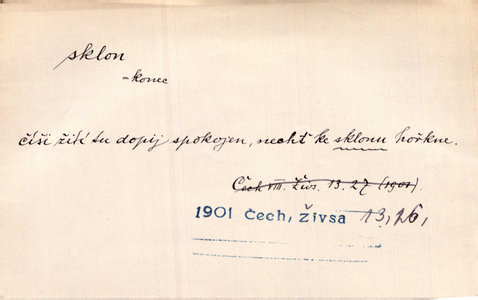 sklon
=konec
číši žití tu dopij spokojen, nechť ke sklonu hořkne.
Čech VIII. Živs. 13.27 (1901).
1901 Čech, Živsa 13, 26,